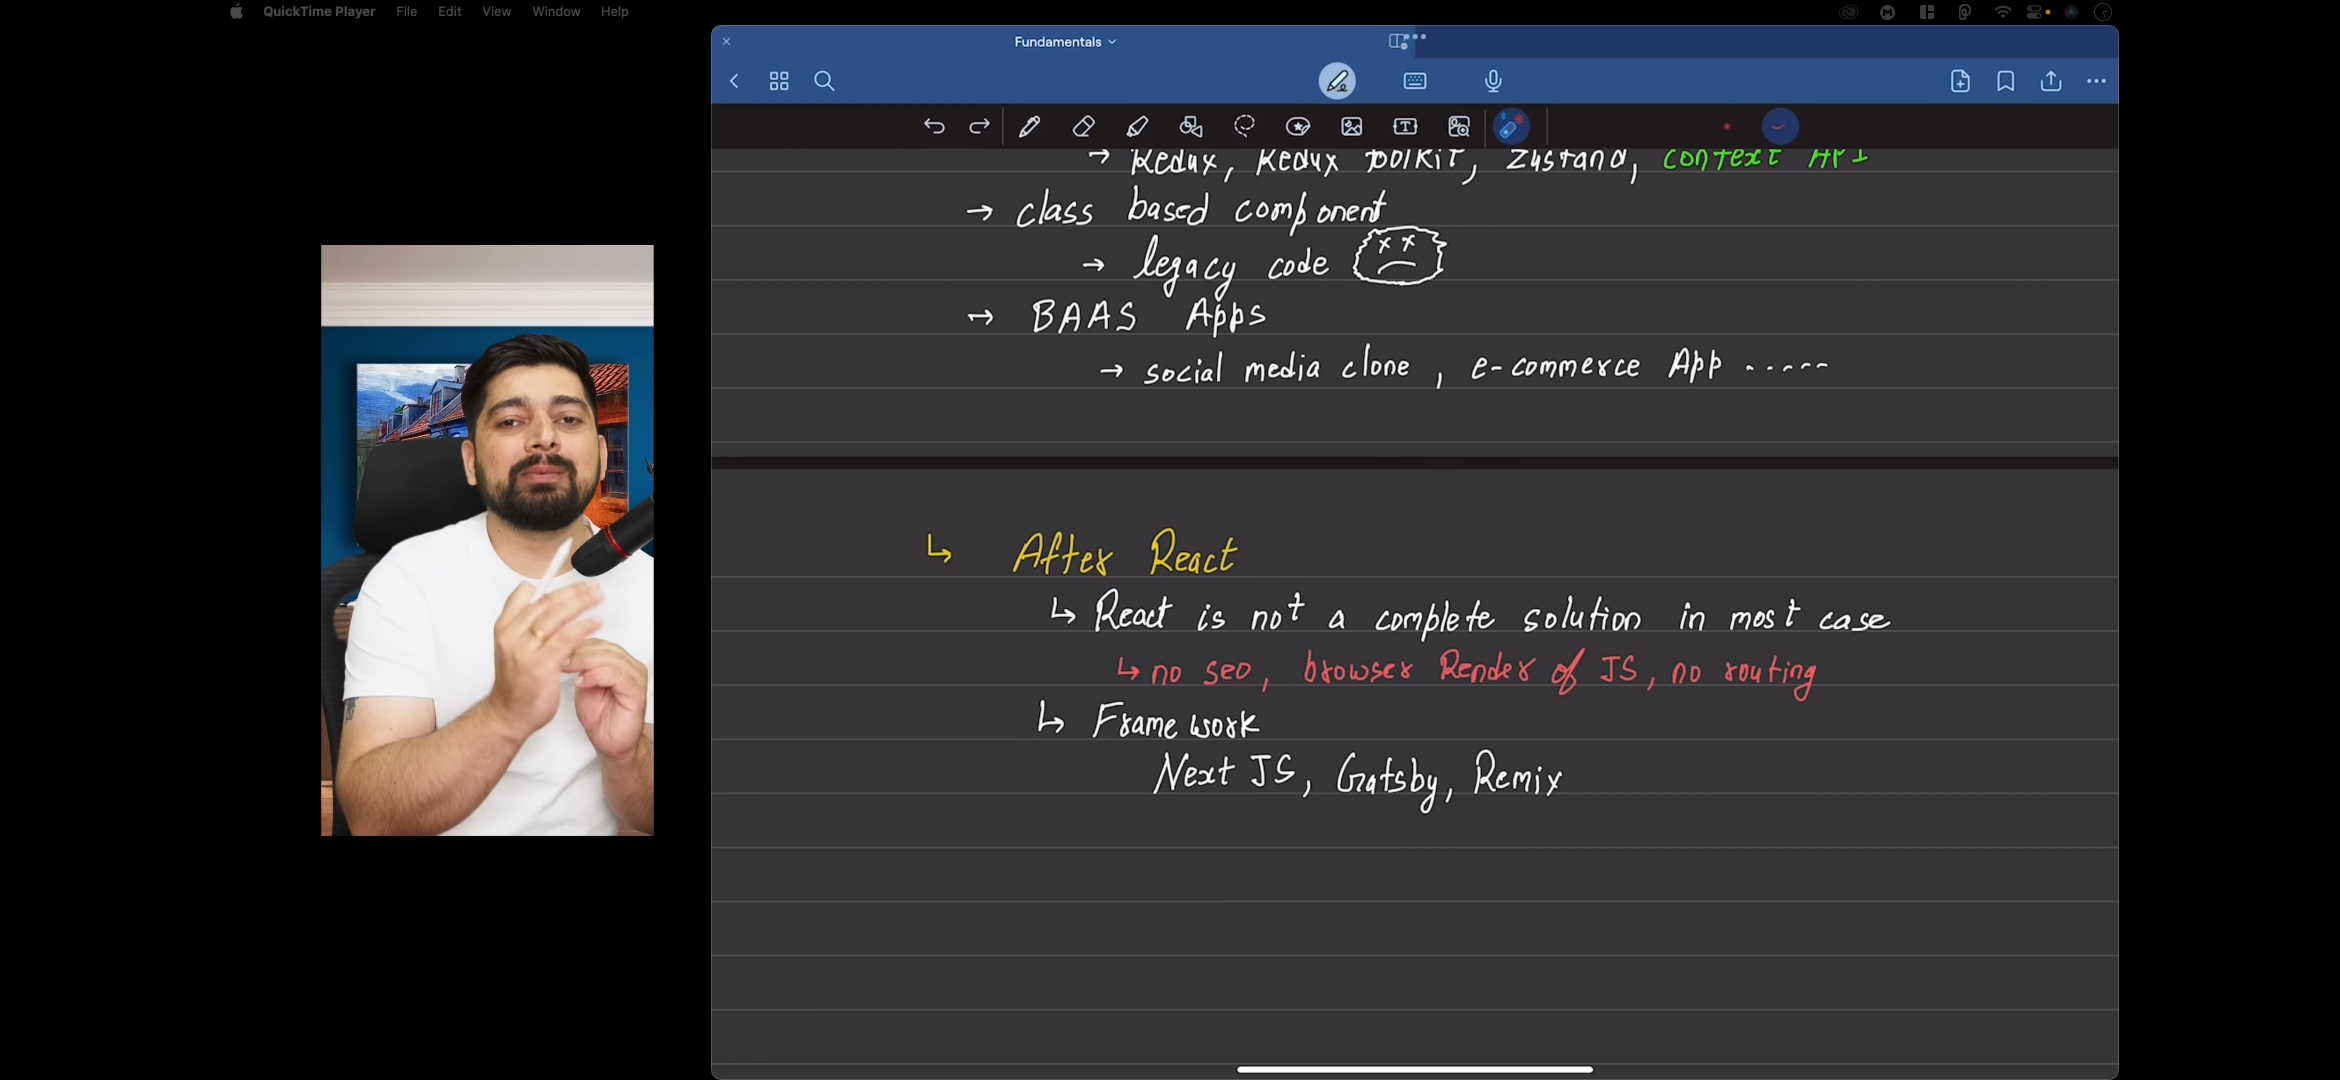 QuickTime Player File Edit View Window Help
Fundamentals
→ Redux, Redux toolkit, Zustand, context API
→ class based component
→ legacy code
→ BAAS Apps
→ social media clone, e-commerce App .....
↳ After React
↳ React is not a complete solution in most case
↳ no seo, browser Render of JS, no routing
↳ Frame work
Next JS, Gatsby, Remix